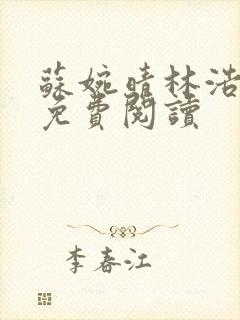 蘇婉晴林浩
免費閱讀
李春江